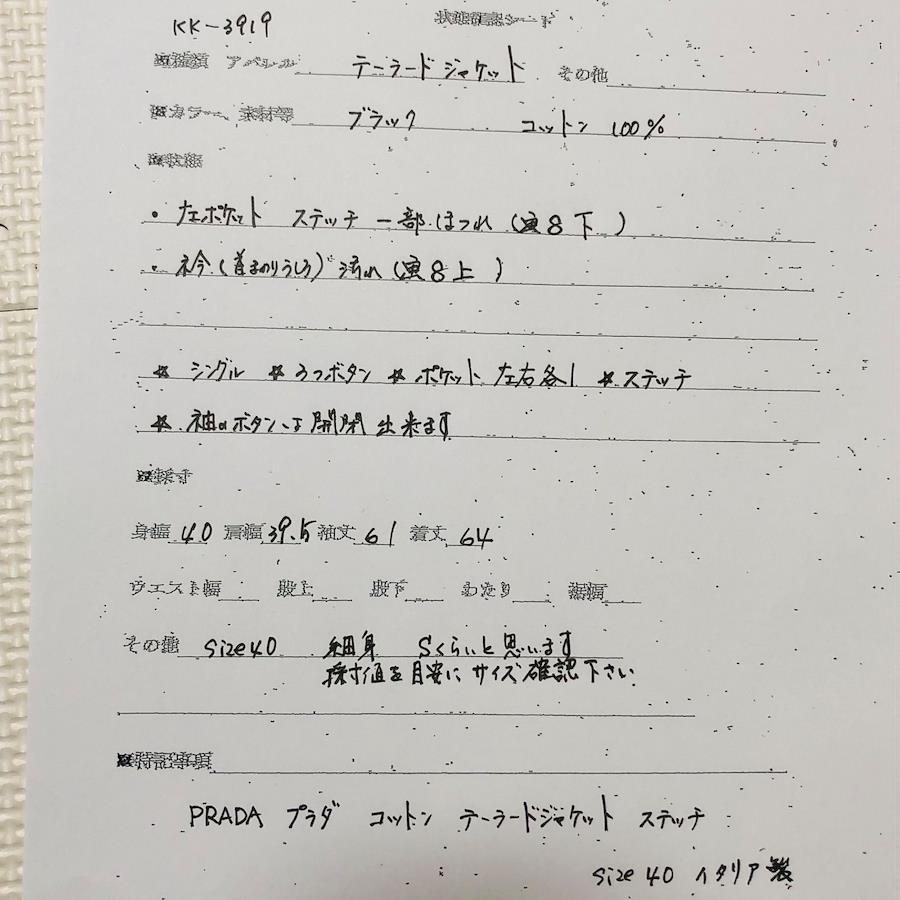 KK-3919 状態確認シート
■種類 アパレル テーラードジャケット その他
■カラー、素材等 ブラック コットン 100%
■状態
・左ポケット ステッチ 一部ほつれ (写8下)
・衿(首まわりうしろ) 汚れ (写8上)
☆ シングル ☆ 3つボタン ☆ ポケット 左右各1 ☆ ステッチ
☆ 袖のボタンは開閉出来ます
■採寸
身幅 40 肩幅 39.5 袖丈 61 着丈 64
ウエスト幅 股上 股下 わたり 裾幅
その他 size40 細身 Sくらいと思います
採寸値を目安に サイズ確認下さい
■特記事項
PRADA プラダ コットン テーラードジャケット ステッチ
size 40 イタリア製